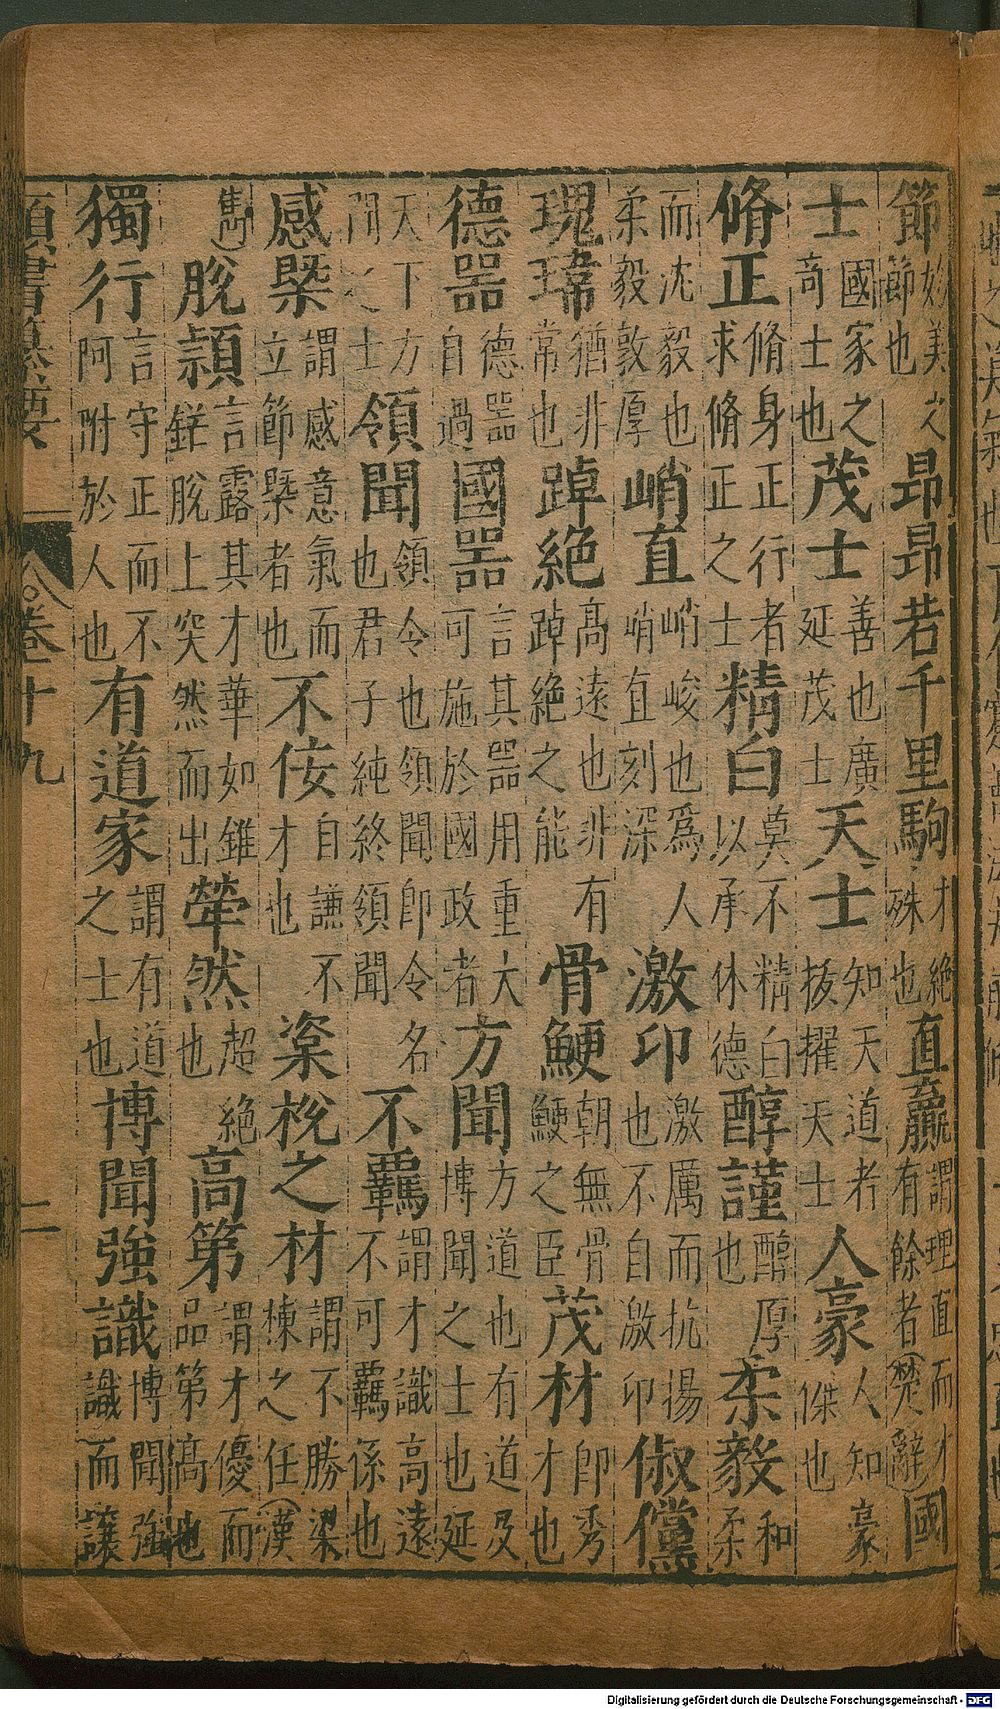 節妙美之節節也昂昂若千里駒才絶殊也直贏謂理直而才有餘者(楚辭)國
士國家之奇士也茂士善也廣延茂士天士知天道者拔擢天士人豪人知豪傑也
脩正脩身正行者求脩正之士精白莫不精白以承休德醇謹醇厚也柔毅和柔
而沈毅也柔毅敦厚峭直峭峻也爲人峭直刻深激卬激厲而抗揚也不自激卬俶儻
瑰瑋猶非常也踔絶高遠也非有踔絶之能骨鯁朝無骨鯁之臣茂材即秀才也
德器德器自過國器言其器用重大可施於國政者方聞方道也有道及博聞之士也延
天下方聞之士領聞領令也領聞即令名也君子純終領聞不羈謂才識高遠不可羈係也
感槩謂感意氣而立節槩者也不佞自謙不才也楶梲之材謂不勝梁棟之任(漢
雋脫穎言露其才華如錐鋒脫上突然而出犖然超絶也高第謂才優而品第高也
獨行言守正而不阿附於人也有道家謂有道之士也博聞強識博聞強識而讓
類書纂要 卷十九 二
Digitalisierung gefördert durch die Deutsche Forschungsgemeinschaft - DFG